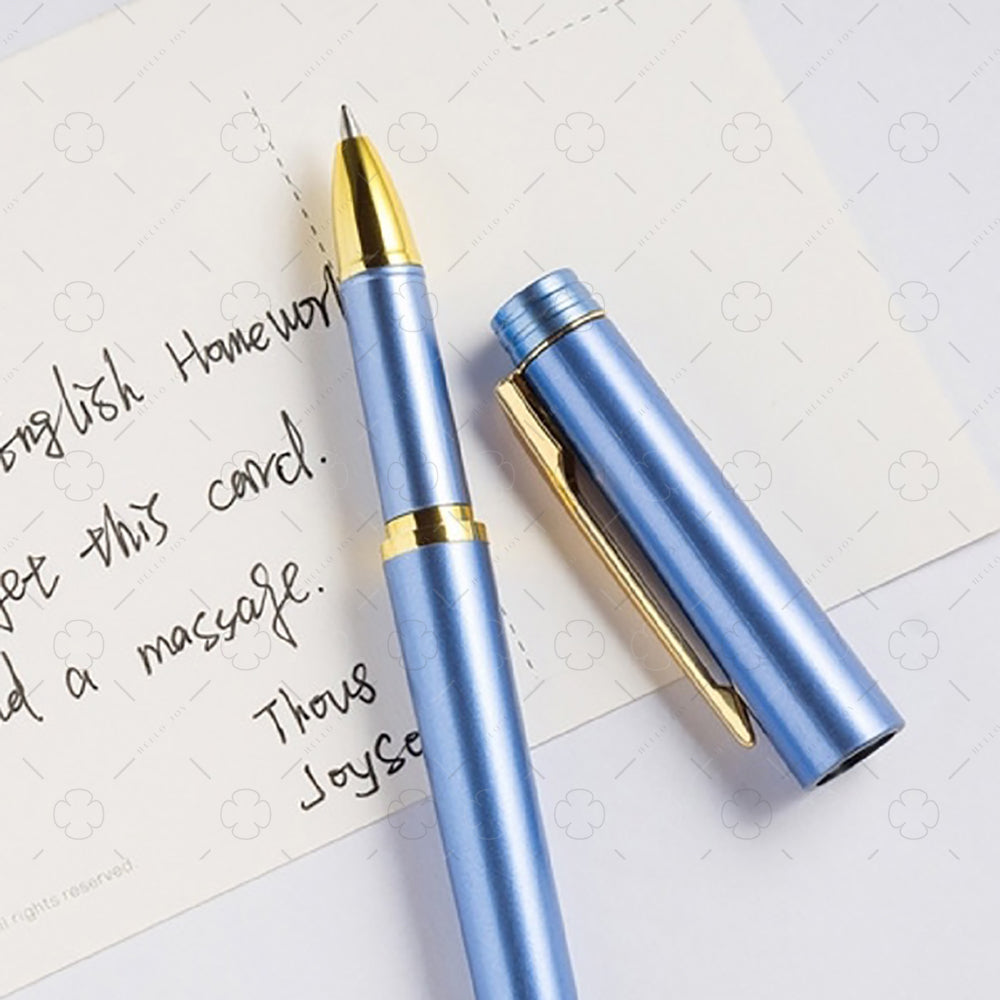 English Homework
get this card.
nd a massage.
Thous
Joyse
all rights reserved.
HELLO JOY